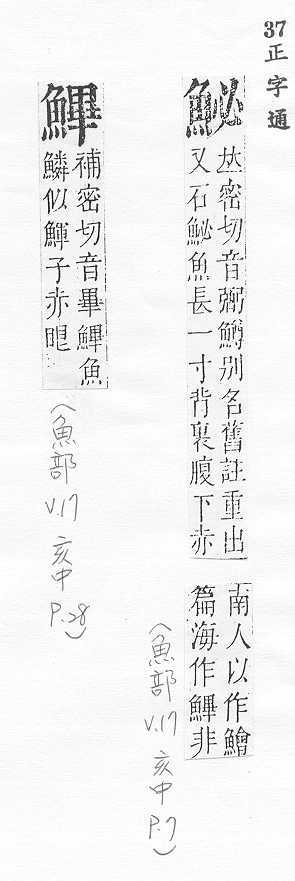 37
正字通
鮅
𠀤密切音弼鱒別名舊註重出
又石鮅魚長一寸背裏腹下赤
南人以作鱠
篇海作鷝非
(魚部 V.17 亥中 P.7)
鷝
補密切音畢鷝魚
鱗似鯶子赤眼
(魚部 V.17 亥中 P.28)